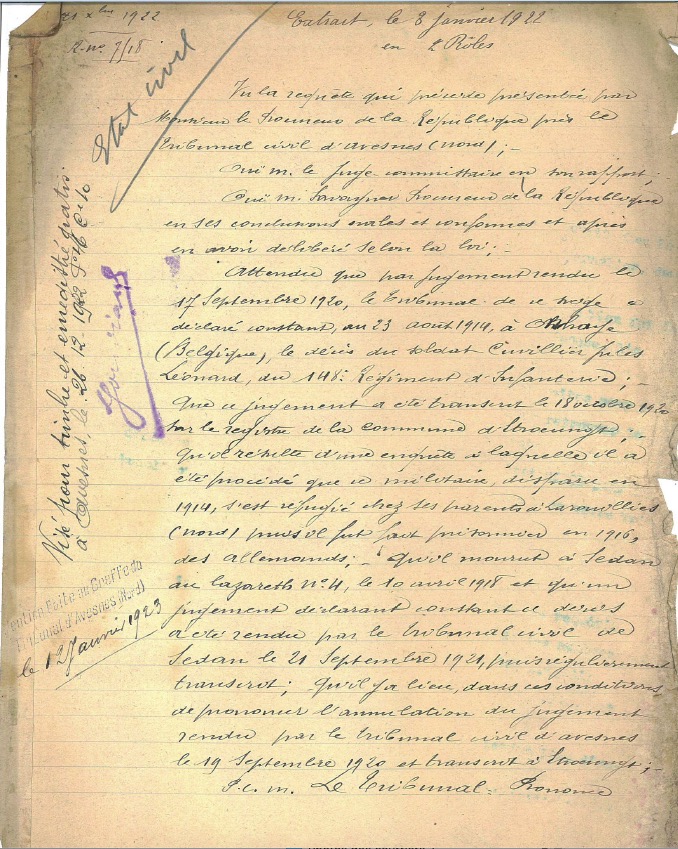 21 Xbre 1922
R. no. 7/18
Extrait, le 3 janvier 1922
en 2 Rôles
Etat civil
Vu la requête qui précède présentée par
Monsieur le Procureur de la République près le
Tribunal civil d'Avesnes (Nord); -
Ouï M. le juge commissaire en son rapport;
Ouï M. Procureur de la République
en ses conclusions orales et conformes et après
en avoir délibéré selon la loi; -
Attendu que par jugement rendu le
17 Septembre 1920, le Tribunal de ce siège a
déclaré constant, au 23 août 1914, à
(Belgique), le décès du soldat Cuvillier Jules
Léonard, du 148e Régiment d'Infanterie; -
Que ce jugement a été transcrit le 18 octobre 1920
sur le registre de la commune d'Etroeungt;
qu'il résulte d'une enquête à laquelle il a
été procédé que ce militaire, disparu en
1914, s'est réfugié chez ses parents à Larouillies
(Nord) puis il fut fait prisonnier en 1916,
des allemands; - Qu'il mourut à Sedan
au lazareth No 4, le 10 avril 1918 et qu'un
jugement déclarant constant ce décès
a été rendu par le tribunal civil de
Sedan le 21 Septembre 1921, puis régulièrement
transcrit; Qu'il y a lieu, dans ces conditions
de prononcer l'annulation du jugement
rendu par le tribunal civil d'avesnes
le 19 Septembre 1920 et transcrit à Etroeungt; -
P. c. m. Le Tribunal - Prononce
Visé pour timbre et enregistré gratis
à Avesnes, le 26.12.1922 Fo 76 Co 10
Rentrée Faite au Greffe du
Tribunal d'Avesnes (Nord)
le 12 Janvier 1923